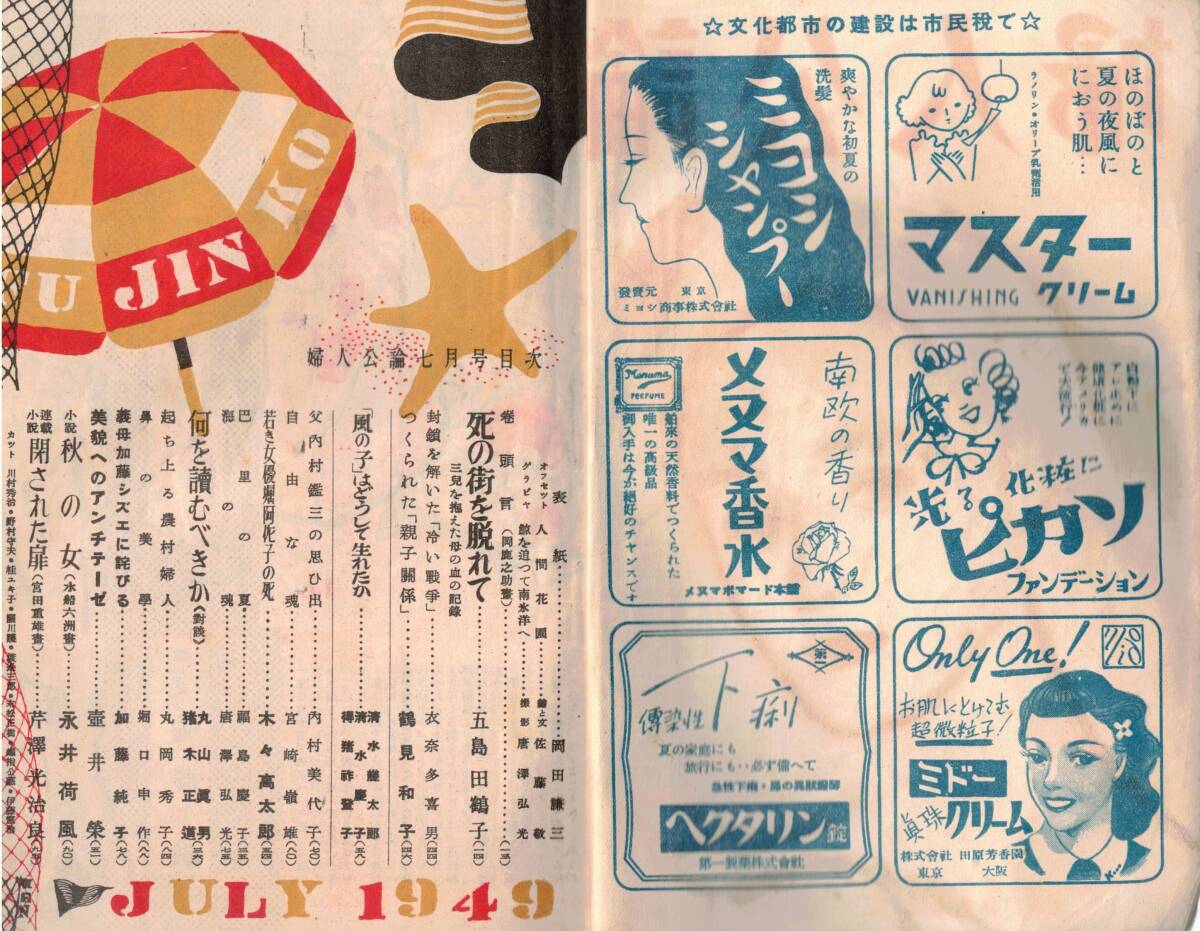 ☆文化都市の建設は市民税で☆
ほのぼのと
夏の夜風に
におう肌…
ラノリン・オリーブ乳剤活用
マスター
VANISHING クリーム
爽やかな初夏の
洗髪
ミヨシ
シャンプー
發賣元 東京
ミヨシ商事株式会社
化粧に
光る
ピカソ
ファンデーション
南欧の香り
メヌマ香水
Menuma
PERFUME
舶来の天然香料でつくられた
唯一の高級品
御入手は今が絶好のチャンスです
メヌマポマード本舗
Only One!
お肌にとけこむ
超微粒子!
ミドー
眞珠クリーム
株式会社 田原芳香園
東京 大阪
第一
傳染性
下痢
夏の家庭にも
旅行にも‥必ず備へて
急性下痢・腸の異狀醱酵
ヘクタリン錠
第一製薬株式会社
U
JIN
KO
婦人公論七月号目次
表紙 岡田謙三
オフセット 人間花園 繪と文 佐藤敬
グラビヤ 鯨を追つて南氷洋へ 撮影 唐澤弘光
巻頭言(岡鹿之助畫)
死の街を脱れて 五島田鶴子
三兒を抱えた母の血の記錄
封鎖を解いた「冷い戰爭」 衣奈多喜男
つくられた「親子關係」 鶴見和子
「風の子」はどうして生れたか 清水幾太郎
清水慶子
得猪祚登子
父内村鑑三の思ひ出 内村美代子
自由な魂 宮崎嶺雄
若き女優堀阿佐子の死 木々高太郎
巴里の夏 福島慶子
海の魂 唐澤弘光
何を讀むべきか(對談) 丸山眞男
猪木正道
起ち上る農村婦人 丸岡秀子
鼻の美學 堀口申作
義母加藤シズエに詫びる 加藤純子
美貌へのアンチテーゼ 壺井榮
小説 秋の女(水船六洲畫) 永井荷風
連載小説 閉された扉(宮田重雄畫) 芹澤光治良
カット 川村秀治・野村守夫・桂ユキ子
JULY 1949